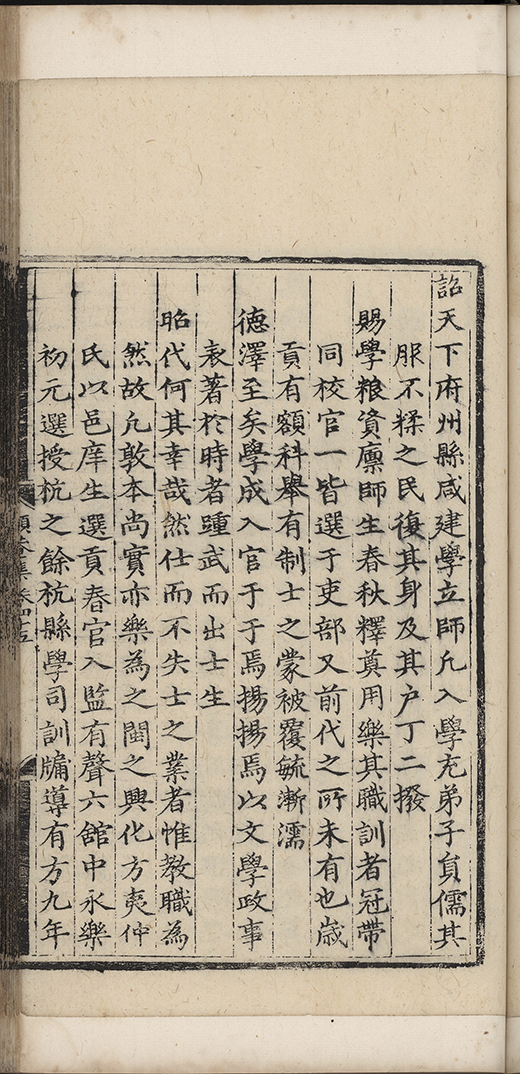 詔天下府州縣咸建學立師凡入學充弟子員儒其
服不糅之民復其身及其户丁二撥
賜學粮資廪師生春秋釋奠用樂其職訓者冠帶
同校官一皆選于吏部又前代之所未有也歳
貢有額科舉有制士之蒙被覆毓漸濡
徳澤至矣學成入官于于焉揚揚焉以文學政事
表著於時者踵武而出士生
昭代何其幸哉然仕而不失士之業者惟教職為
然故凡敦本尚實亦樂為之閩之興化方夷仲
氏以邑庠生選貢春官入監有聲六舘中永樂
初元選授杭之餘杭縣學司訓牗導有方九年
頤菴集